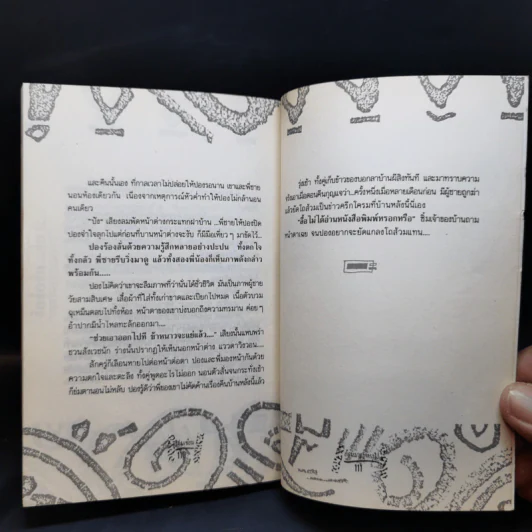 และคืนนั้นเอง ที่กาลเวลาไม่ปล่อยให้ปองรอนาน เขาและพี่ชาย
นอนห้องเดียวกัน เนื่องจากเหตุการณ์หัวค่ำทำให้ปองไม่กล้านอน
คนเดียว
"ปัง" เสียงลมพัดหน้าต่างกระแทกฝาบ้าน ...พี่ชายใช้ให้ปองปิด
ปองจำใจลุกไปแต่ก่อนที่บานหน้าต่างจะงับ ก็มีมือเหี่ยว ๆ มายัดไว้...
ปองร้องลั่นด้วยความรู้สึกหลายอย่างปะปน ทั้งตกใจ
ทั้งกลัว พี่ชายรีบวิ่งมาดู แล้วทั้งสองพี่น้องก็เห็นภาพดังกล่าว
พร้อมกัน.....
ปองไม่คิดว่าเขาจะลืมภาพที่ว่านั้นได้ชั่วชีวิต มันเป็นภาพผู้ชาย
วัยสามสิบเศษ เสื้อผ้าที่ใส่ทั้งเก่าขาดและเปียกไปหมด เนื้อตัวบวม
ฉุเหมือนศพไปทั้งห้อง หน้าตาของเขาบ่งบอกถึงความทรมาน ค่อยๆ
อ้าปากมีน้ำไหลทะลักออกมา....
"ช่วยเอาออกไปที ข้าหนาวจะแย่แล้ว...." เสียงนั้นแหบพร่า
ชวนสังเวชนัก ร่างนั้นปรากฏให้เห็นนอกหน้าต่าง แววตาวิงวอน....
ลักครู่ก็เลือนหายไปต่อหน้าต่อตา ปองและพี่มองหน้ากันด้วย
ความตกใจและตะลึง ทั้งคู่พูดอะไรไม่ออก นอนตัวสั่นจนกระทั่งเช้า
ก็ข่มตานอนไม่หลับ ปองรู้ดีว่าพี่ของเขาไม่คัดค้านเรื่องคืนบ้านหลังนี้แล้ว
รุ่งเช้า ทั้งคู่เก็บข้าวของบอกลาบ้านผีสิงทันที และมาทราบความ
จริงเอาตอนคืนกุญแจว่า...ครั้งหนึ่งเมื่อหลายเดือนก่อน มีผู้ชายถูกฆ่า
แล้วยัดโถส้วมเป็นข่าวครึกโครมที่บ้านหลังนี้นี่เอง
"ลื้อไม่ได้อ่านหนังสือพิมพ์หรอกหรือ" ซิ้มเจ้าของบ้านถาม
หน้าตาเฉย จนปองอยากจะยัดแกลงโถส้วมแทน....